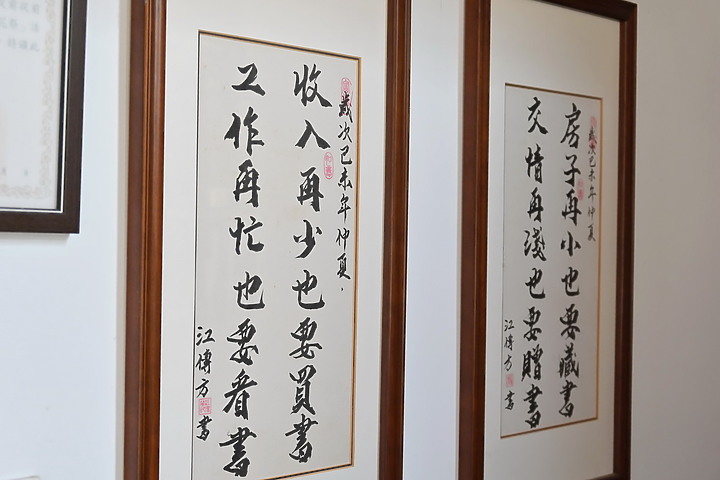 歲次己未年仲夏
收入再少也要買書
工作再忙也要看書
江傳方書
歲次己未年仲夏
房子再小也要藏書
交情再淺也要贈書
江傳方書